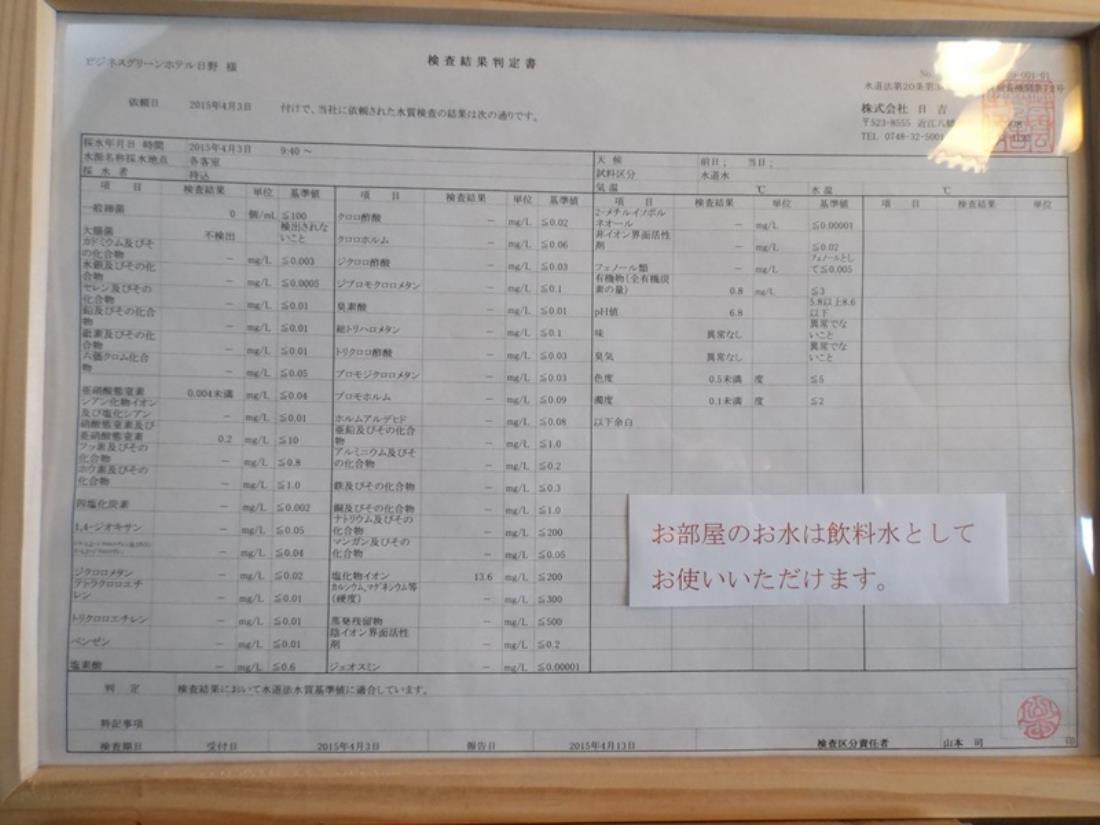 ビジネスグリーンホテル日野 様
検査結果判定書
No.
水道法第20条第3
依頼日 2015年4月3日 付けで、当社に依頼された水質検査の結果は次の通りです。
株式会社 日 吉
〒523-8555 近江八幡
TEL 0748-32-5001
採水年月日 時間 2015年4月3日 9:40 ~
水源名称採水地点 各客室
採 水 者 持込
天 候 前日; 当日;
試料区分 水道水
気 温 ℃ 水 温 ℃
項 目 検査結果 単位 基準値
一般細菌 0 個/mL ≦100
大腸菌 不検出 検出されないこと
カドミウム及びその化合物 - mg/L ≦0.003
水銀及びその化合物 - mg/L ≦0.0005
セレン及びその化合物 - mg/L ≦0.01
鉛及びその化合物 - mg/L ≦0.01
砒素及びその化合物 - mg/L ≦0.01
六価クロム化合物 - mg/L ≦0.05
亜硝酸態窒素 0.004未満 mg/L ≦0.04
シアン化物イオン及び塩化シアン - mg/L ≦0.01
硝酸態窒素及び亜硝酸態窒素 0.2 mg/L ≦10
フッ素及びその化合物 - mg/L ≦0.8
ホウ素及びその化合物 - mg/L ≦1.0
四塩化炭素 - mg/L ≦0.002
1,4-ジオキサン - mg/L ≦0.05
- mg/L ≦0.04
ジクロロメタン - mg/L ≦0.02
テトラクロロエチレン - mg/L ≦0.01
トリクロロエチレン - mg/L ≦0.01
ベンゼン - mg/L ≦0.01
塩素酸 - mg/L ≦0.6
項 目 検査結果 単位 基準値
クロロ酢酸 - mg/L ≦0.02
クロロホルム - mg/L ≦0.06
ジクロロ酢酸 - mg/L ≦0.03
ジブロモクロロメタン - mg/L ≦0.1
臭素酸 - mg/L ≦0.01
総トリハロメタン - mg/L ≦0.1
トリクロロ酢酸 - mg/L ≦0.03
ブロモジクロロメタン - mg/L ≦0.03
ブロモホルム - mg/L ≦0.09
ホルムアルデヒド - mg/L ≦0.08
亜鉛及びその化合物 - mg/L ≦1.0
アルミニウム及びその化合物 - mg/L ≦0.2
鉄及びその化合物 - mg/L ≦0.3
銅及びその化合物 - mg/L ≦1.0
ナトリウム及びその化合物 - mg/L ≦200
マンガン及びその化合物 - mg/L ≦0.05
塩化物イオン 13.6 mg/L ≦200
カルシウム,マグネシウム等(硬度) - mg/L ≦300
蒸発残留物 - mg/L ≦500
陰イオン界面活性剤 - mg/L ≦0.2
ジェオスミン - mg/L ≦0.00001
項 目 検査結果 単位 基準値
2-メチルイソボルネオール - mg/L ≦0.00001
非イオン界面活性剤 - mg/L ≦0.02
フェノール類 - mg/L フェノールとして≦0.005
有機物(全有機炭素の量) 0.8 mg/L ≦3
pH値 6.8 5.8以上8.6以下
味 異常なし 異常でないこと
臭気 異常なし 異常でないこと
色度 0.5未満 度 ≦5
濁度 0.1未満 度 ≦2
以下余白
項 目 検査結果 単位
お部屋のお水は飲料水として
お使いいただけます。
判 定 検査結果において水道法水質基準値に適合しています。
特記事項
検査期日 受付日 2015年4月3日 報告日 2015年4月13日 検査区分責任者 山本 司 印